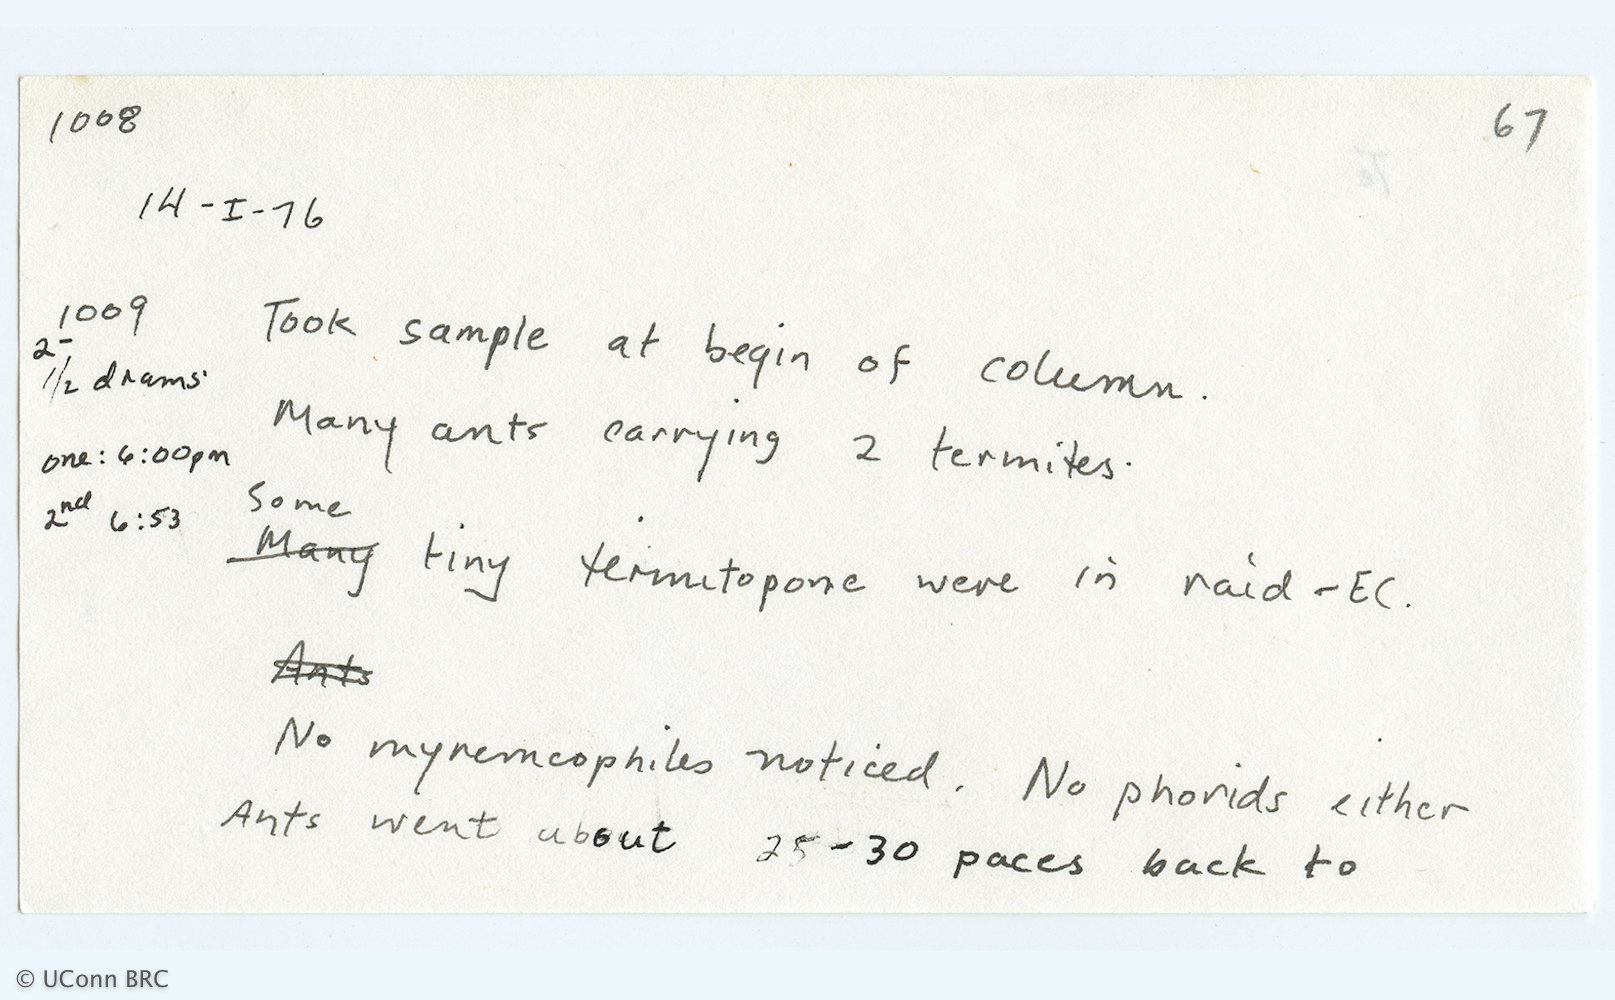 1008
67
14-I-76
1009
2-
1/2 drams
one: 6:00pm
2nd 6:53
Took sample at begin of column.
Many ants carrying 2 termites.
Some
Many tiny termitopone were in raid - EC.
Ants
No myremcophiles noticed. No phorids either
Ants went about 25-30 paces back to
© UConn BRC